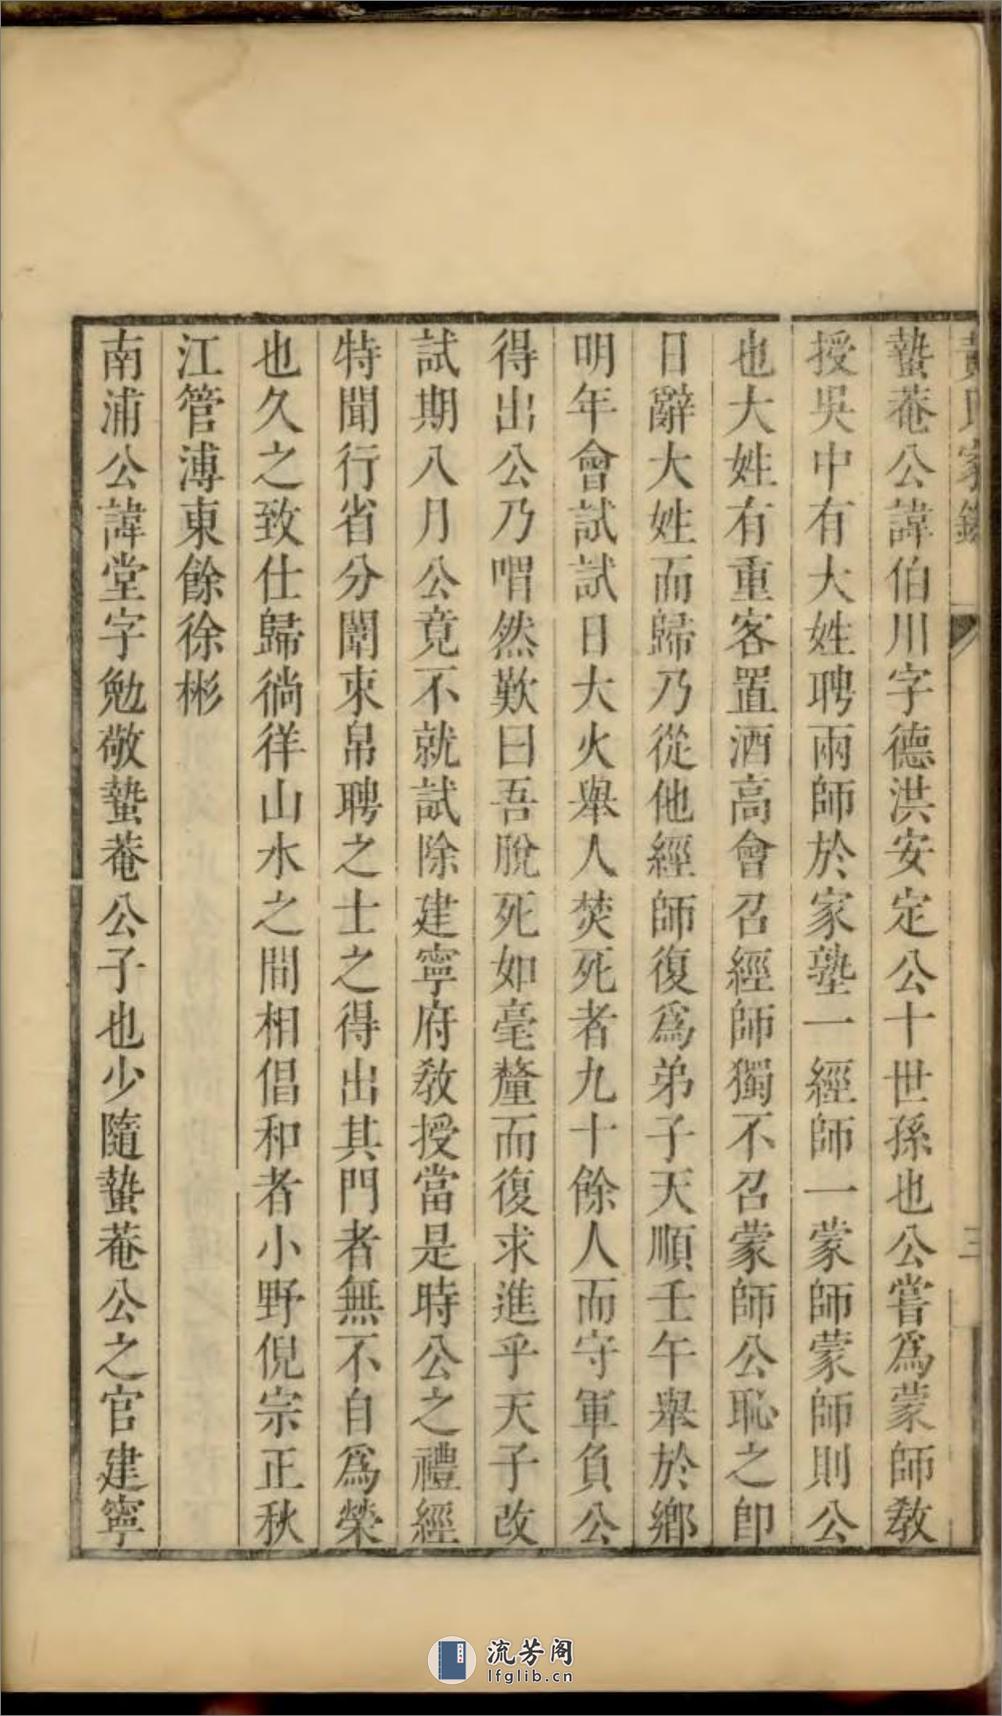 蟄菴公諱伯川字德洪安定公十世孫也公嘗爲蒙師敎
授吳中有大姓聘兩師於家塾一經師一蒙師蒙師則公
也大姓有重客置酒高會召經師獨不召蒙師公恥之卽
日辭大姓而歸乃從他經師復爲弟子天順壬午舉於鄉
明年會試試日大火舉人焚死者九十餘人而守軍負公
得出公乃喟然歎曰吾脫死如毫釐而復求進乎天子改
試期八月公竟不就試除建寧府敎授當是時公之禮經
特聞行省分闈束帛聘之士之得出其門者無不自爲榮
也久之致仕歸徜徉山水之間相倡和者小野倪宗正秋
江管溥東餘徐彬
南浦公諱堂字勉敬蟄菴公子也少隨蟄菴公之官建寧
流芳阁
lfglib.cn